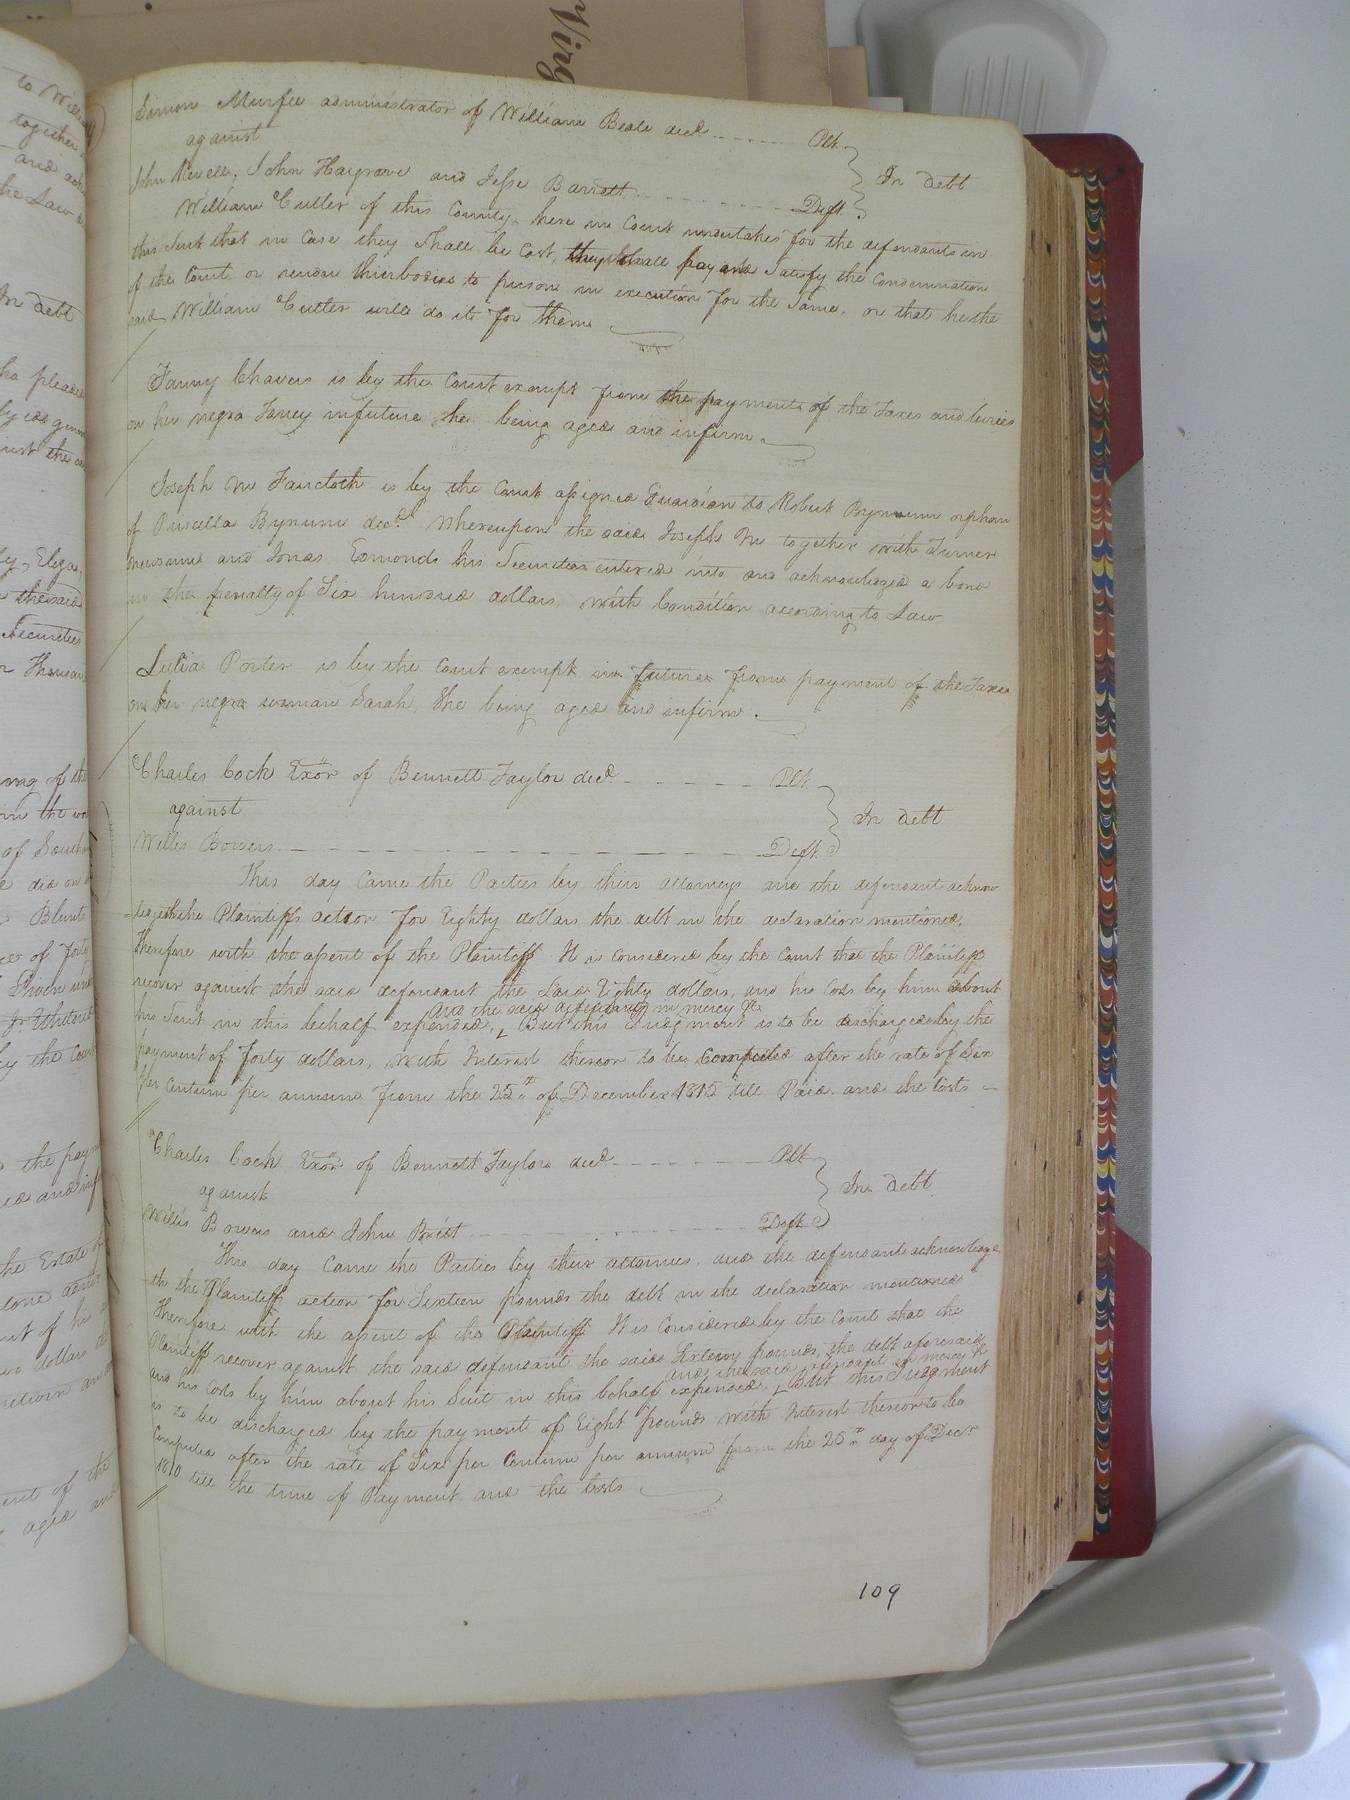 Virg
Simon Murfee administrator of William Beale decd Plt.
against
John Revell, John Hargrave and Jesse Barrett Deft. In debt
William Cutler of this County, here in Court undertakes for the defendants in
this Suit that in Case they Shall be Cast, they shall pay and Satisfy the Condemnation
of the Court or render their bodies to prison in execution for the Same, or that he the
said William Cutler will do it for them
Fanny Chavers is by the Court exempt from the payment of the Taxes and levies
on her negro Fancy in future she being aged and infirm.
Joseph W Faircloth is by the Court assigned Guardian to Robert Bynum orphan
of Priscilla Bynum decd. Whereupon the said Joseph W together with Turner
Newsome and Jonas Edmonds his Securities entered into and acknowledged a bond
in the penalty of Six hundred dollars, With Condition according to Law
Lulia Porter is by the Court exempt in future from payment of the Taxes
on her negro woman Sarah, She being aged and infirm.
Charles Cock Exor of Bennett Taylor decd Plt.
against In debt
Willis Bowers Deft.
This day Came the Parties by their attorneys and the defendant acknow
=ledgeth the Plaintiffs action for Eighty dollars the debt in the declaration mentioned,
Therefore with the assent of the Plaintiff It is Considered by the Court that the Plaintiff
recover against the said defendant the Said Eighty dollars, and his Costs by him about
and the said defendant in mercy &c
his Suit in this behalf expended, But this Judgment is to be discharged by the
payment of Forty dollars, With Interest thereon to be Computed after the rate of Six
per Centum per annum from the 25th of December 1815 till Paid and the Costs =
Charles Cock Exor of Bennett Taylor decd Plt
against In debt
Willis Bowers and John Britt Deft
This day Came the Parties by their attornies and the defendants acknowledge
=th the Plaintiff action for Sixteen pounds the debt in the declaration mentioned
Therefore with the assent of the Plaintiff It is Considered by the Court that the
Plaintiff recover against the said defendant the said Sixteen pounds, the debt aforesaid
and the said defendant in mercy &c
and his Costs by him about his Suit in this behalf expended, But this Judgment
is to be discharged by the payment of Eight pounds with Interest thereon to be
Computed after the rate of Six per Centum per annum from the 25th day of Decr
1810 till the time of Payment and the Costs
109